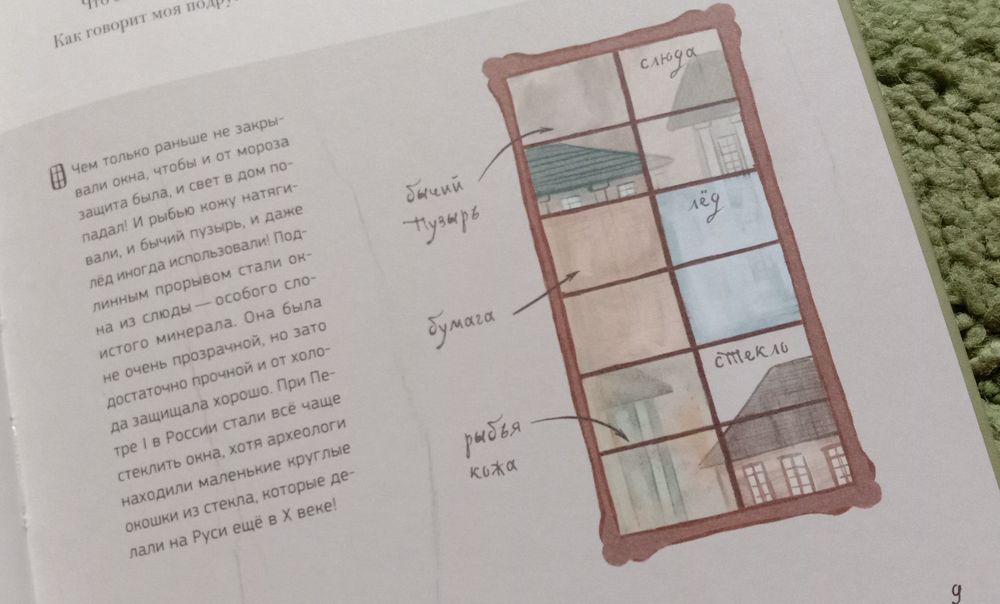 Что
Как говорит моя
Чем только раньше не закры-
вали окна, чтобы и от мороза
защита была, и свет в дом по-
падал! И рыбью кожу натяги-
вали, и бычий пузырь, и даже
лёд иногда использовали! Под-
линным прорывом стали ок-
на из слюды — особого сло-
истого минерала. Она была
не очень прозрачной, но зато
достаточно прочной и от холо-
да защищала хорошо. При Пе-
тре I в России стали всё чаще
стеклить окна, хотя археологи
находили маленькие круглые
окошки из стекла, которые де-
лали на Руси ещё в X веке!
слюда
бычий
пузырь
лёд
бумага
стекло
рыбья
кожа
9